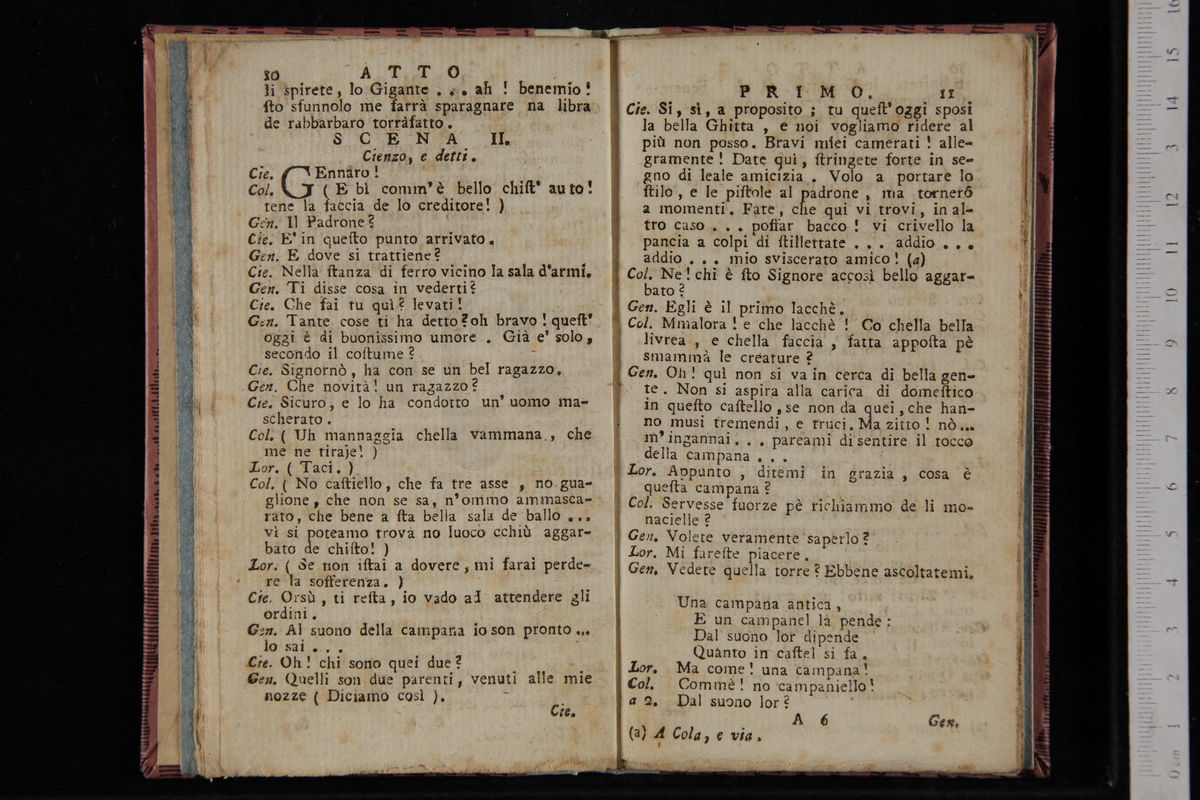 10 ATTO
li spirete, lo Gigante . . . ah ! benemio !
ſto sfunnolo me farrà sparagnare na libra
de rabbarbaro torrafatto.
SCENA II.
Cienzo, e detti.
Cie. GEnnaro !
Col. ( E bì comm' è bello chiſt' auto !
tene la faccia de lo creditore! )
Gen. Il Padrone ?
Cie. E' in queſto punto arrivato.
Gen. E dove si trattiene ?
Cie. Nella ſtanza di ferro vicino la sala d'armi.
Gen. Ti disse cosa in vederti ?
Cie. Che fai tu quì ? levati !
Gen. Tante cose ti ha detto ? oh bravo ! queſt'
oggi è di buonissimo umore . Già e' solo,
secondo il coſtume ?
Cie. Signornò, ha con se un bel ragazzo.
Gen. Che novità ! un ragazzo ?
Cie. Sicuro, e lo ha condotto un' uomo ma-
scherato .
Col. ( Uh mannaggia chella vammana., che
me ne tiraje! )
Lor. ( Taci. )
Col. ( No caſtiello, che fa tre asse , no gua-
glione, che non se sa, n'ommo ammasca-
rato, che bene a ſta bella sala de ballo ...
vi si poteamo trovà no luoco cchiù aggar-
bato de chiſto! )
Lor. ( Se non iſtai a dovere, mi farai perde-
re la sofferenza. )
Cie. Orsù , ti reſta, io vado ad attendere gli
ordini .
Gen. Al suono della campana io son pronto ...
lo sai . . .
Cie. Oh ! chi sono quei due ?
Gen. Quelli son due parenti, venuti alle mie
nozze ( Diciamo così ).
Cie.
PRIMO. 11
Cie. Si, sì, a proposito ; tu queſt' oggi sposi
la bella Ghitta , e noi vogliamo ridere al
più non posso. Bravi miei camerati ! alle-
gramente ! Date quì, ſtringete forte in se-
gno di leale amicizia . Volo a portare lo
ſtilo , e le piſtole al padrone , ma tornerò
a momenti. Fate, che qui vi trovi, in al-
tro caso . . . poffar bacco ! vi crivello la
pancia a colpi di ſtillettate . . . addio . . .
addio . . . mio sviscerato amico ! (a)
Col. Ne ! chi è ſto Signore accosì bello aggar-
bato ?
Gen. Egli è il primo lacchè.
Col. Mmalora ! e che lacchè ! Co chella bella
livrea , e chella faccia , fatta appoſta pè
smammà le creature ?
Gen. Oh ! quì non si va in cerca di bella gen-
te . Non si aspira alla carica di domeſtico
in queſto caſtello, se non da quei, che han-
no musi tremendi, e truci. Ma zitto ! nò...
m' ingannai . . . pareami di sentire il tocco
della campana . . .
Lor. Appunto , ditemi in grazia , cosa è
queſta campana ?
Col. Servesse fuorze pè richiammo de li mo-
nacielle ?
Gen. Volete veramente saperlo ?
Lor. Mi fareſte piacere .
Gen. Vedete quella torre ? Ebbene ascoltatemi.
Una campana antica ,
E un campanel là pende :
Dal suono lor dipende
Quanto in caſtel si fa .
Lor. Ma come ! una campana !
Col. Commè ! no campaniello !
a 2. Dal suono lor ?
A 6 Gen.
(a) A Cola, e via .